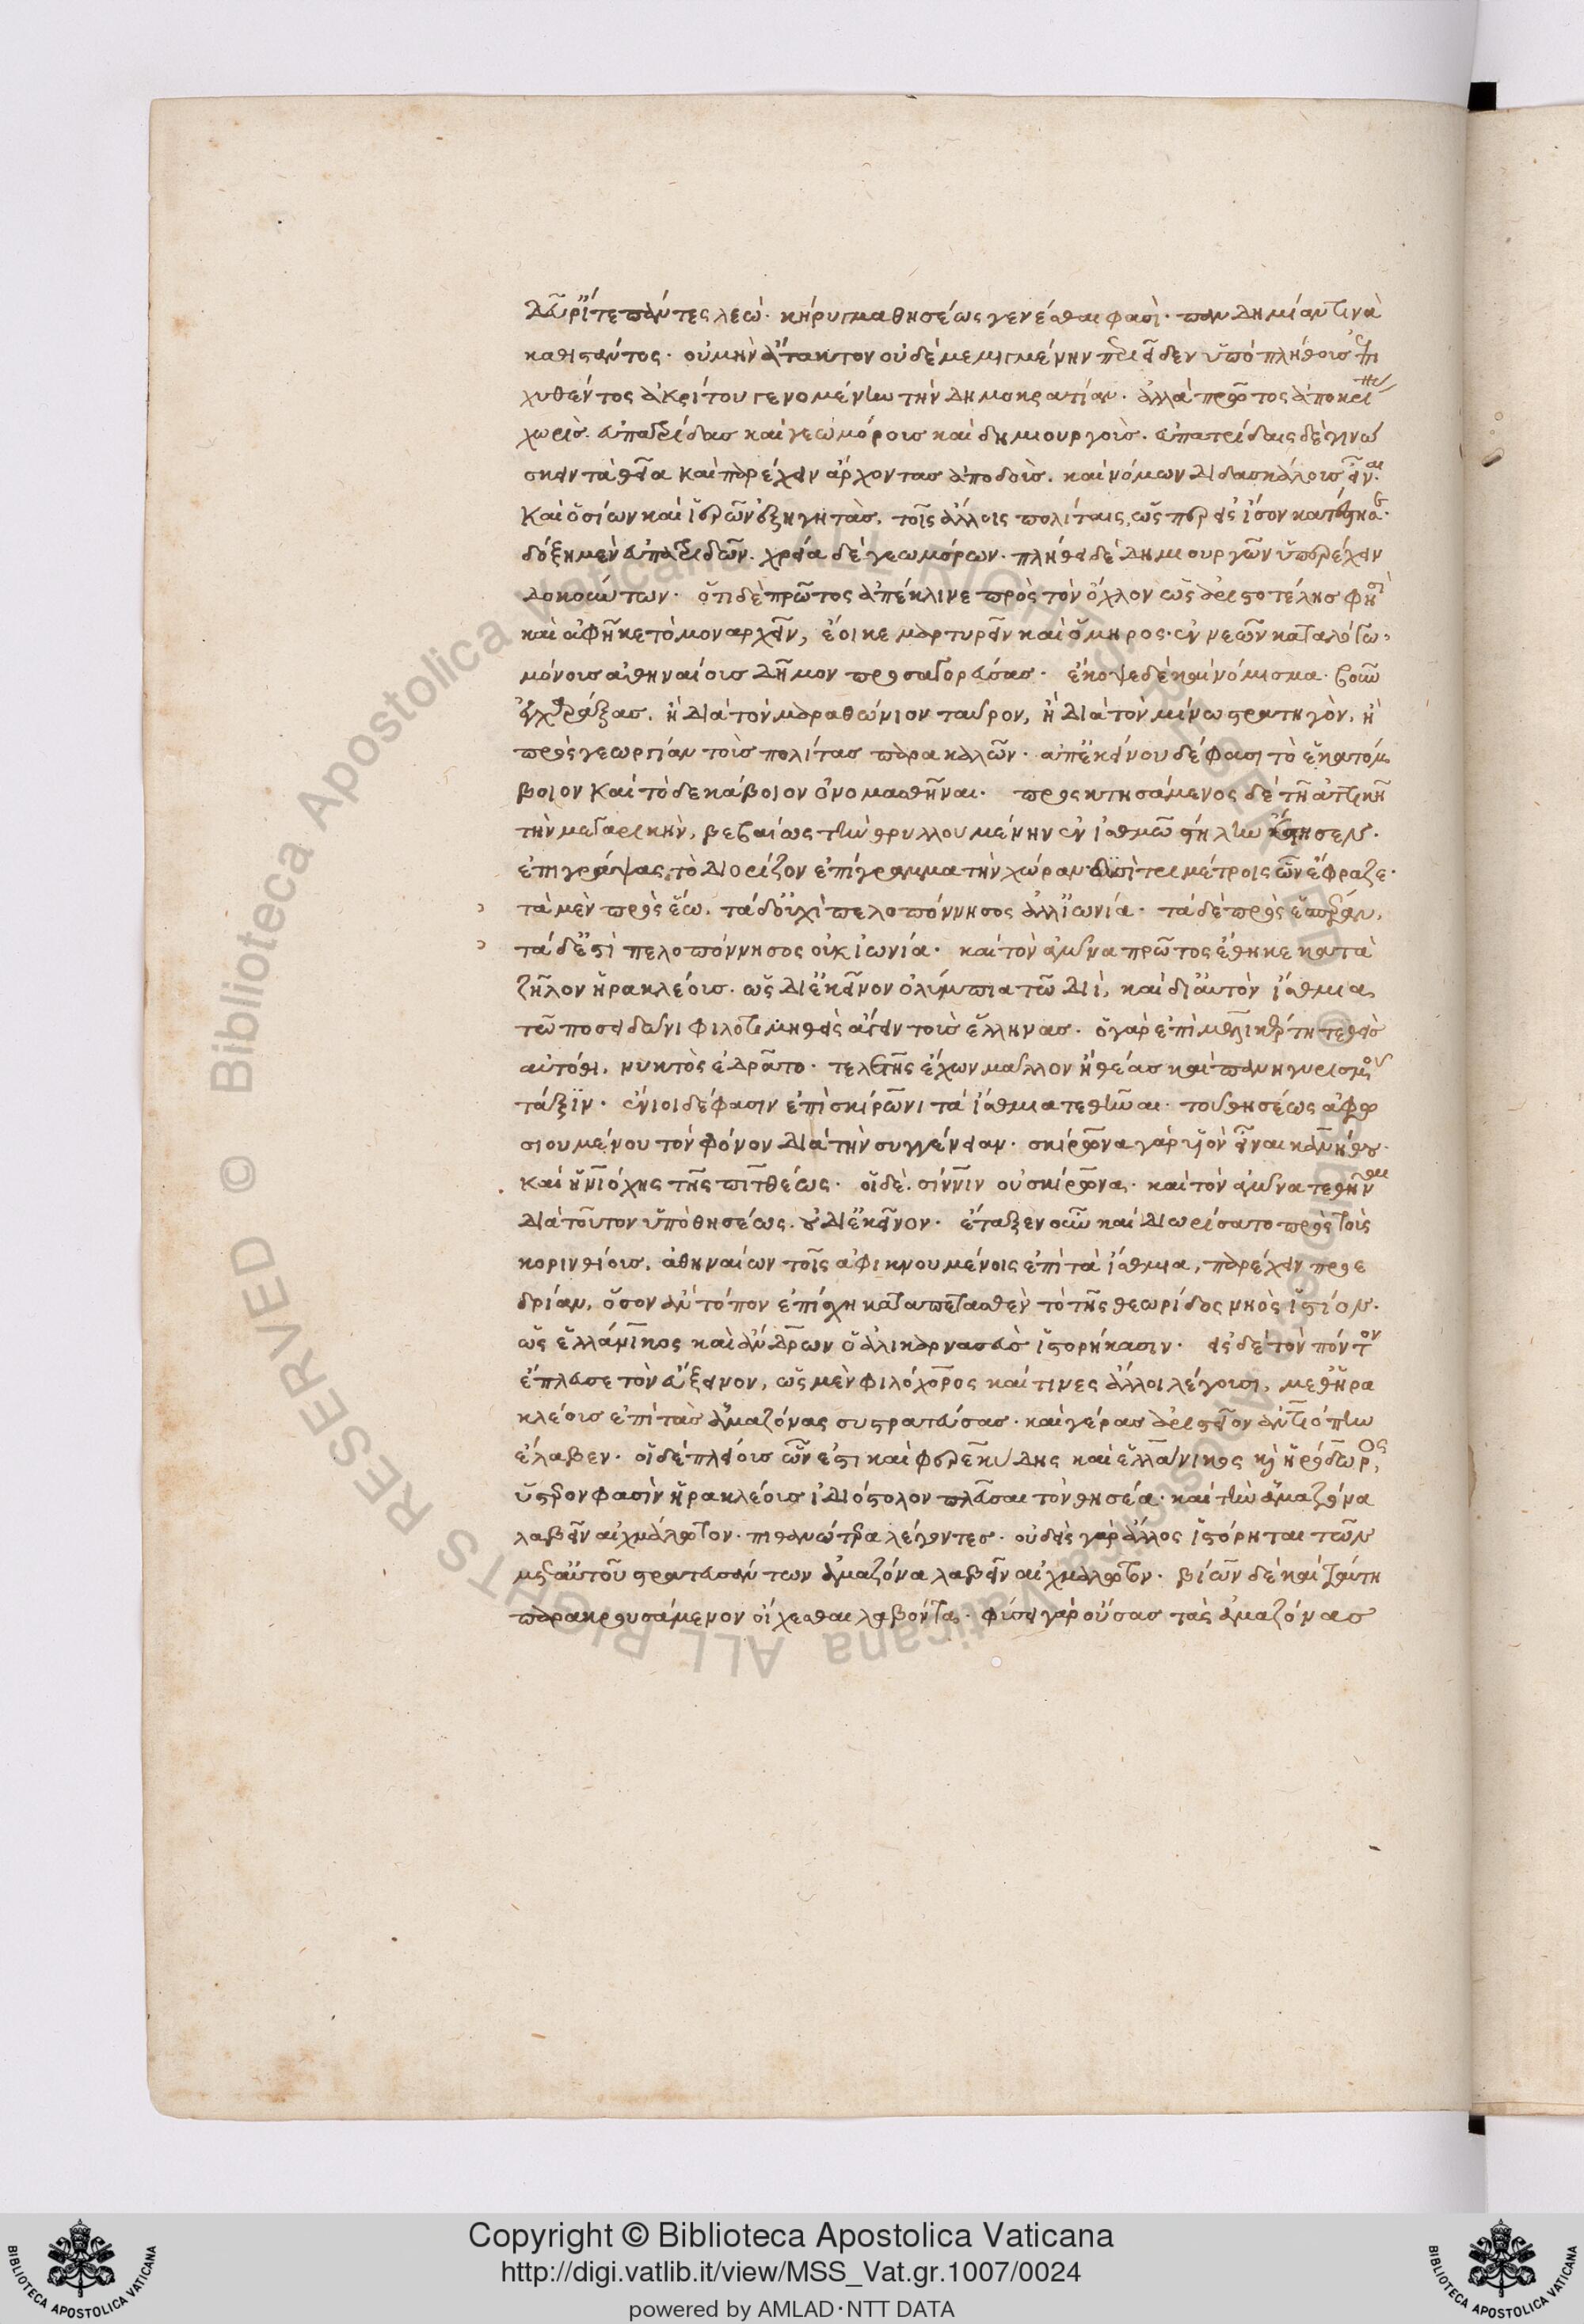 δεῦρ' ἴτε πάντες λεώ· κήρυγμα θησέως γενέσθαι φασὶ· πανδημίαν τινὰ
καθιστάντος· οὐ μὴν ἄτακτον οὐδὲ μεμιγμένην περιεῖδεν ὑπὸ πλήθους ἐπι
χυθέντος ἀκρίτου γενομένην τὴν δημοκρατίαν· ἀλλὰ πρῶτος ἀποκρί
χωρὶς. εὐπατρίδας καὶ γεωμόρους καὶ δημιουργοὺς. εὐπατρίδαις δὲ γινώ
σκειν τὰ θεῖα καὶ παρέχειν ἄρχοντας ἀποδοὺς. καὶ νόμων διδασκάλους εἶναι.
καὶ ὁσίων καὶ ἱερῶν ἐξηγητὰς. τοῖς ἄλλοις πολίταις, ὥσπερ εἰς ἴσον
δόξη μὲν εὐπατριδῶν. χρεία δὲ γεωμόρων. πλήθει δὲ δημιουργῶν ὑπερέχειν
δοκούντων· ὅτι δὲ πρῶτος ἀπέκλινε πρὸς τὸν ὄχλον ὡς ἀριστοτέλης φησὶ
καὶ ἀφῆκε τὸ μοναρχεῖν, ἔοικε μαρτυρεῖν καὶ ὅμηρος· ἐν νεῶν καταλόγω,
μόνους ἀθηναίους δῆμον προσαγορεύσας· ἔκοψε δὲ καὶ νόμισμα. βοῦν
ἐγχαράξας, ἢ διὰ τὸν μαραθώνιον ταῦρον, ἢ διὰ τὸν μίνω στρατηγὸν, ἢ
πρὸς γεωργίαν τοὺς πολίτας παρακαλῶν· ἀπ' ἐκείνου δέ φασι τὸ ἑκατόμ
βοιον καὶ τὸ δεκάβοιον ὀνομασθῆναι. προσκτησάμενος δὲ τῆ ἀττικῆ
τὴν μεγαρικὴν, βεβαίως τὴν θρυλλουμένην ἐν ἰσθμῶ στήλην ἔστησεν.
ἐπιγράψας τὸ διορίζον ἐπίγραμμα τὴν χώραν δυσὶ τριμέτροις ὧν ἔφραζε.
τὰ μὲν πρὸς ἕω. τάδ' οὐχὶ πελοπόννησος ἀλλ' ἰωνία. τὰ δὲ πρὸς ἑσπέραν,
τάδ' ἐστὶ πελοπόννησος οὐκ ἰωνία. καὶ τὸν ἀγῶνα πρῶτος ἔθηκε κατὰ
ζῆλον ἡρακλέους. ὡς δι' ἐκεῖνον ὀλύμπια τῶ διὶ, καὶ δι' αὐτὸν ἴσθμια
τῶ ποσειδῶνι φιλοτιμηθεὶς ἄγειν τοὺς ἕλληνας. ὁ γὰρ ἐπὶ μελικέρτη τεθεὶς
αὐτόθι, νυκτὸς ἐδρᾶτο. τελετῆς ἔχων μᾶλλον ἢ θέας καὶ πανηγυρισμοῦ
τάξιν. ἔνιοι δέ φασιν ἐπὶ σκίρωνι τὰ ἴσθμια τεθῆναι. τοῦ θησέως ἀφο
σιουμένου τὸν φόνον διὰ τὴν συγγένειαν. σκίρωνα γὰρ υἱὸν εἶναι κανήθου.
καὶ ἡνιόχης τῆς πιτθέως. οἱ δὲ. σίννιν οὐ σκίρωνα. καὶ τὸν ἀγῶνα τεθῆναι
διὰ τοῦτον ὑπὸ θησέως. οὐ δι' ἐκεῖνον. ἔταξεν οὖν καὶ διωρίσατο πρὸς τοὺς
κορινθίους, ἀθηναίων τοῖς ἀφικνουμένοις ἐπὶ τὰ ἴσθμια, παρέχειν προε
δρίαν, ὅσον ἂν τόπον ἐπίσχη καταπετασθὲν τὸ τῆς θεωρίδος νηὸς ἱστίον.
ὡς ἑλλάνικος καὶ ἄνδρων ὁ ἁλικαρνασεὺς ἱστορήκασιν. εἰς δὲ τὸν πόντον
ἔπλευσε τὸν εὔξεινον, ὡς μὲν φιλόχορος καί τινες ἄλλοι λέγουσι, μεθ' ἡρα
κλέους ἐπὶ τὰς ἀμαζόνας συστρατεύσας. καὶ γέρας ἀριστεῖον ἀντιόπην
ἔλαβεν. οἱ δὲ πλείους ὧν ἐστι καὶ φερεκύδης καὶ ἑλλάνικος καὶ ἡρόδωρος,
ὕστερον φασὶν ἡρακλέους ἰδιόστολον πλεῦσαι τὸν θησέα. καὶ τὴν ἀμαζόνα
λαβεῖν αἰχμάλωτον. πιθανώτερα λέγοντες. οὐδεὶς γὰρ ἄλλος ἱστόρηται τῶν
μετ' αὐτοῦ στρατευσάντων ἀμαζόνα λαβεῖν αἰχμάλωτον. βίων δὲ καὶ ταύτη
παρακρουσάμενον οἴχεσθαι λαβόντα. φύσει γὰρ οὔσας τὰς ἀμαζόνας
Copyright © Biblioteca Apostolica Vaticana
http://digi.vatlib.it/view/MSS_Vat.gr.1007/0024
powered by AMLAD·NTT DATA